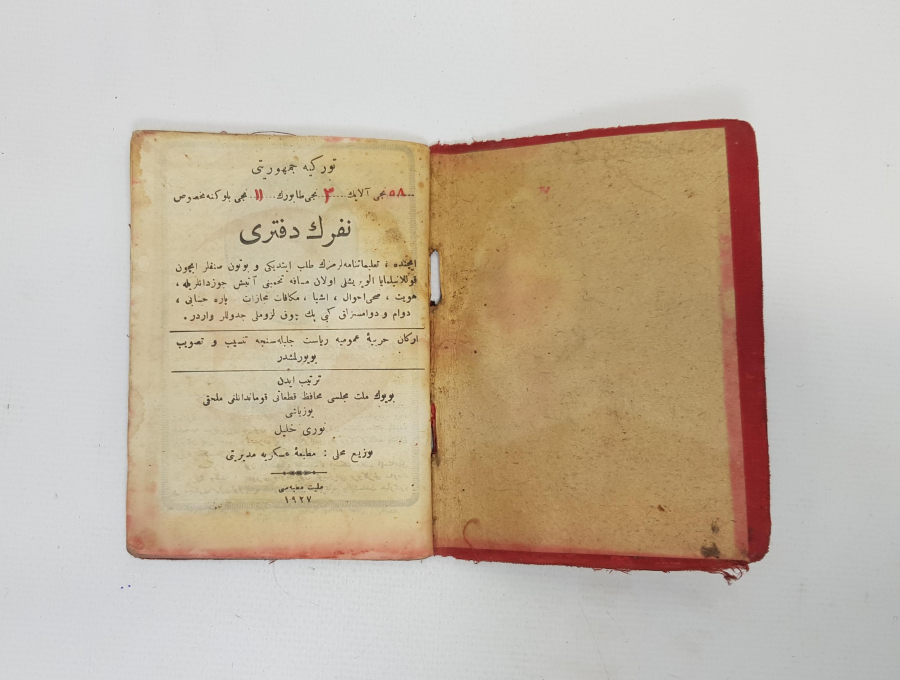 توركيه جمهوريتى
٥٨ نجى آلايك ... ٣ نجى طابورك ... ١١ نجى بلوكنه مخصوص
نفرك دفترى
ايچنده ، تعليماتنامه لرمزك طلب ايتديكى و بوتون صنفلر ايچون
قوللانيلمايا الويريشلى اولان مسافه تخمينى آتيش جوزدانلريله ،
هويت ، صحى احوال ، اشيا ، مكافات مجازات پاره حسابى ،
دوام و دوامسزلق كبى پك چوق لزوملى جدوللر واردر .
اركان حربيۀ عموميه رياست جليله سنجه تنسيب و تصويب
بويورلمشدر
ترتيب ايدن
بويوك ملت مجلسى محافظ قطعاتى قوماندانلغى ملحقى
يوزباشى
نورى خليل
توزيع محلى : مطبعۀ عسكريه مديريتى
مليت مطبعه سى
١٩٢٧